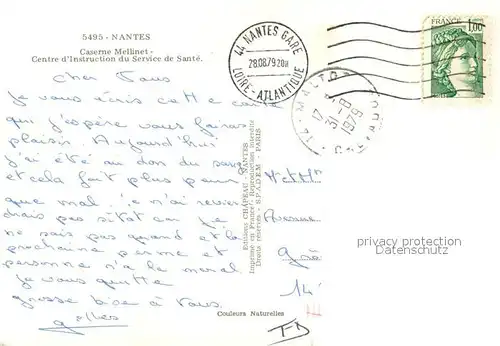 5495 - NANTES
Caserne Mellinet -
Centre d'Instruction du Service de Santé.
44 NANTES GARE
28.08.79 20H
LOIRE-ATLANTIQUE
FRANCE
1,00
17 H
31-8
1979
CALVADOS
Cher Tous
Je vous écris cette carte
qui j'espère vous fairas
plaisir. Aujourd'hui
j'ai été au don du sang
et cela fait plus peur
que mal. je n'ai
pas sitot car je
ne sais pas quand et la
prochaine perme et
personne n'a le moral.
Je vous quitte
grosse bise à Tous.
Gilles
Editions CHAPEAU - NANTES
Imprimé en France. Reproduction Interdite
Droits réservés - S.P.A.D.E.M. PARIS
Couleurs Naturelles
Avenue
14
privacy protection
Datenschutz